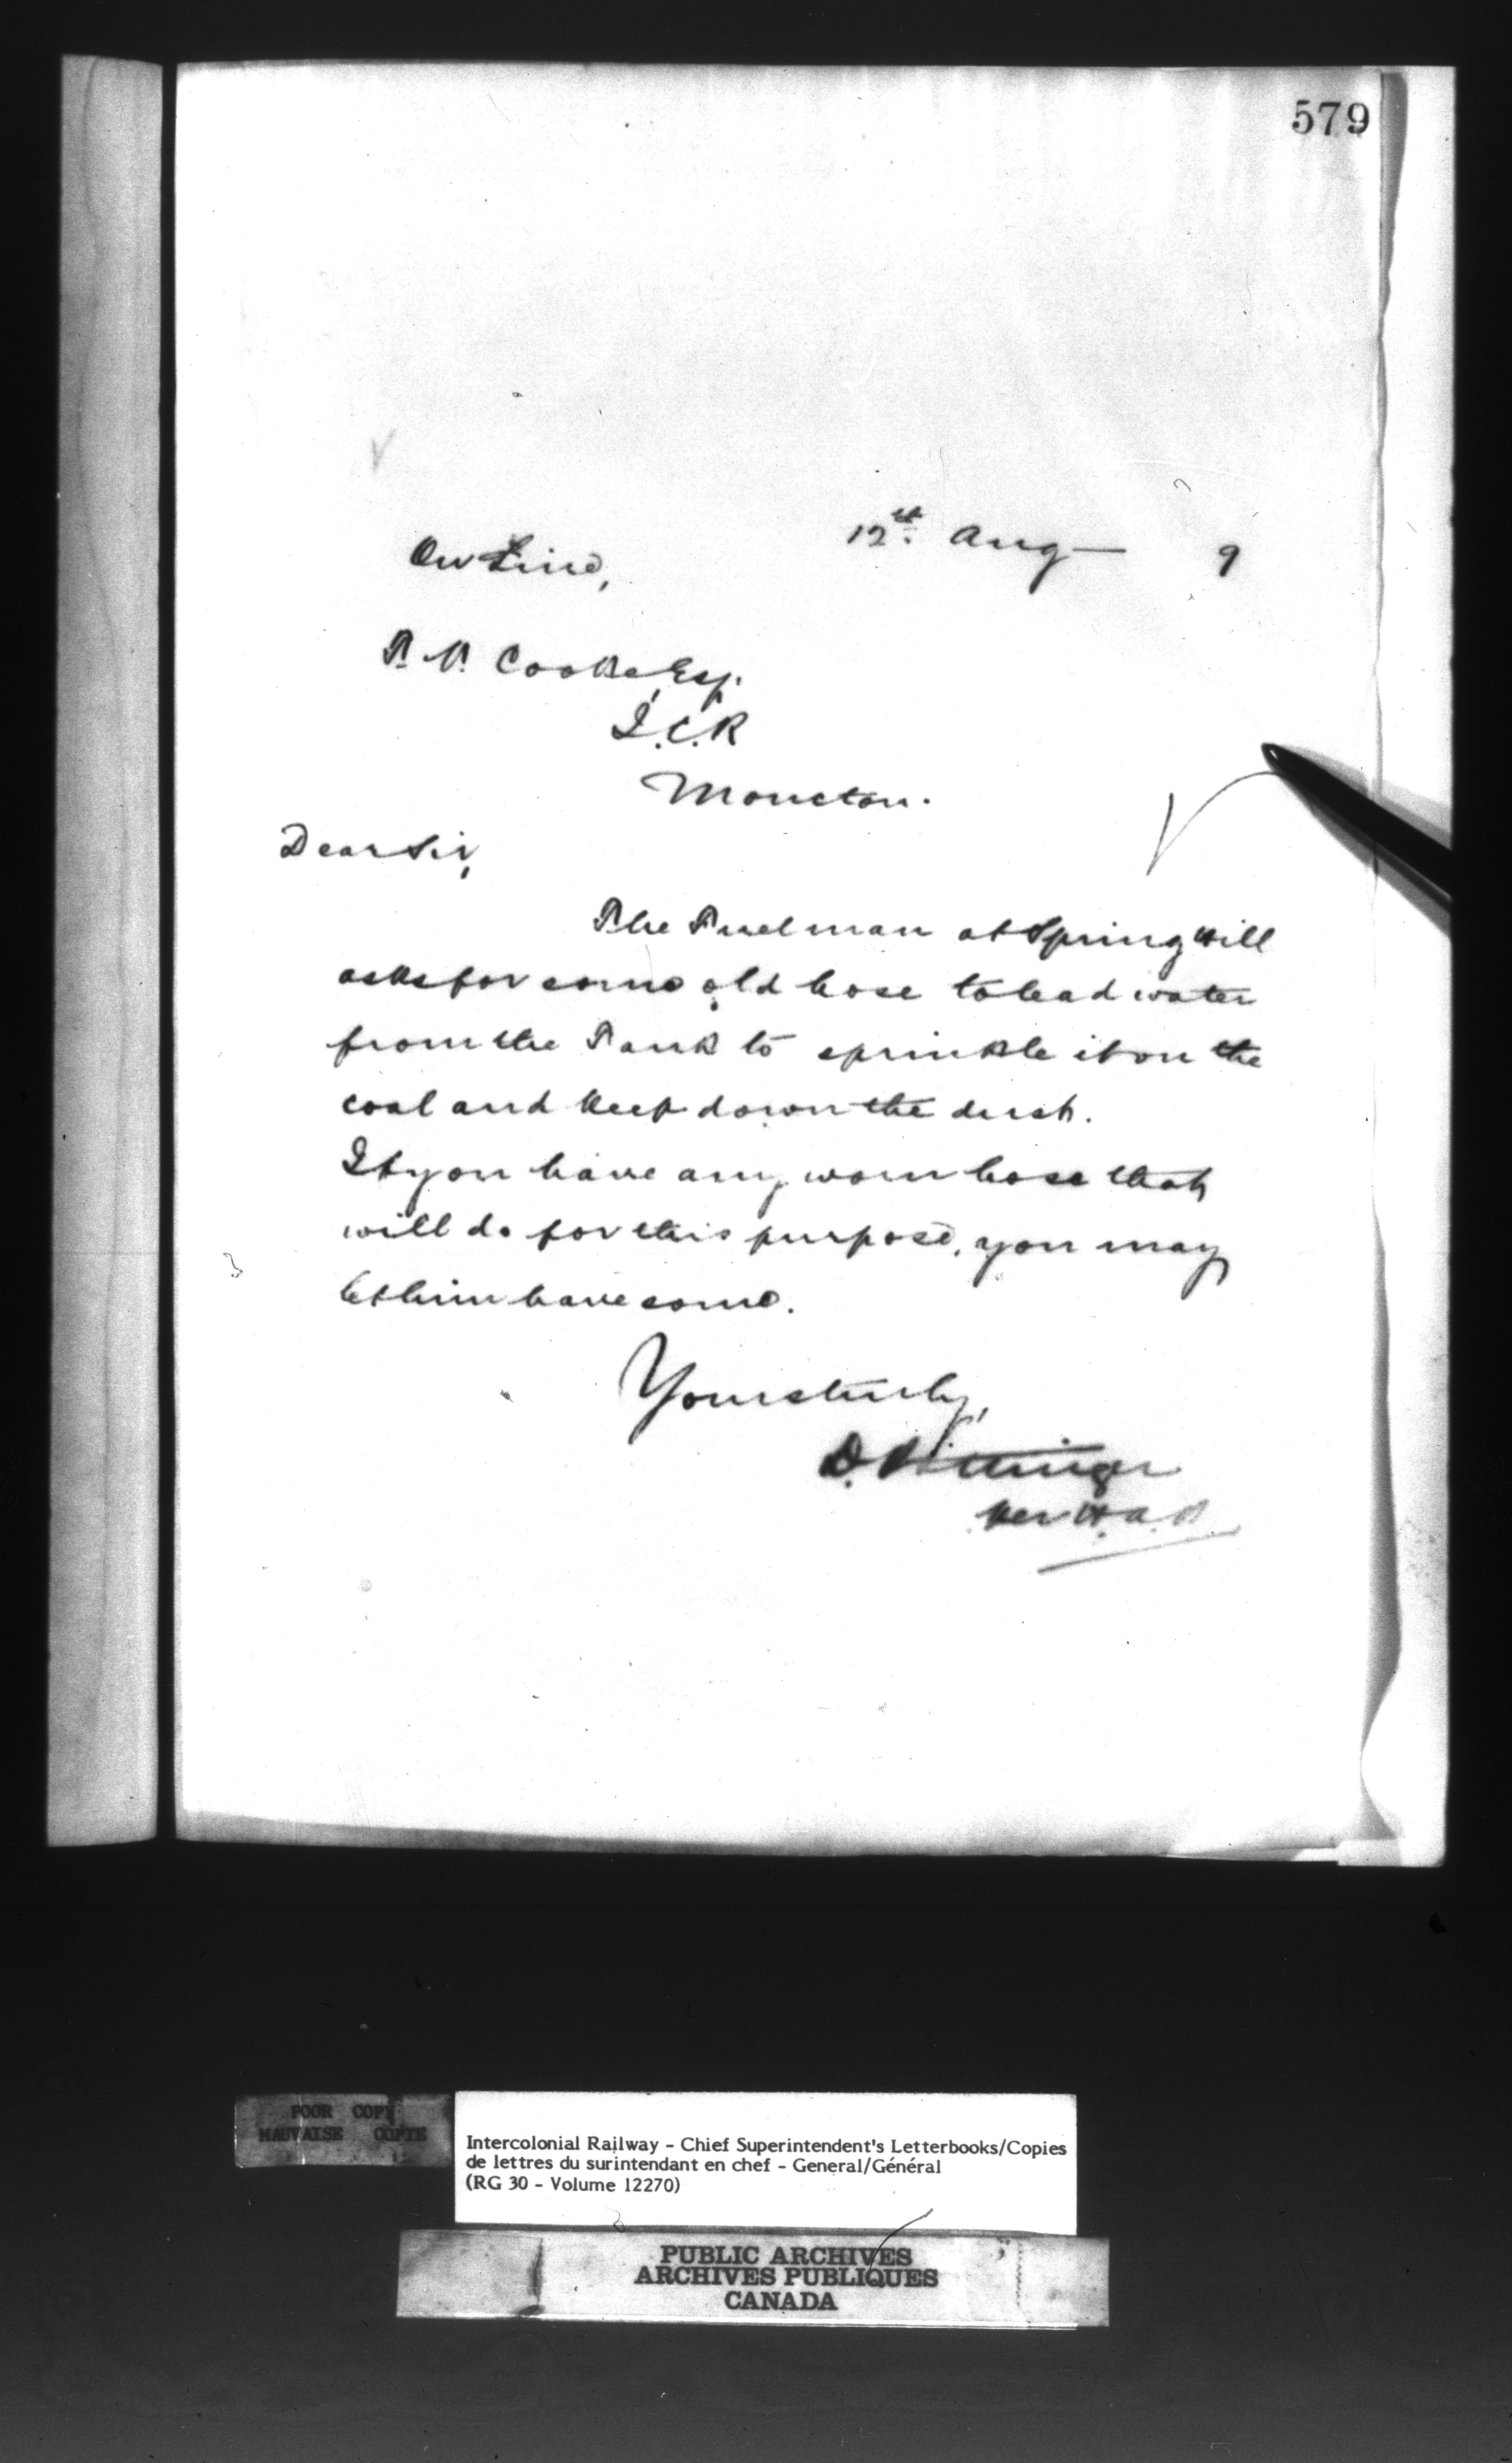 579
12th. Aug 9
On Line,
T. V. Cooke, Esq.
I.C.R
Moncton.
Dear Sir,
The Fuelman at Spring Hill
asks for some old hose to lead water
from the Tank to sprinkle it on the
coal and keep down the dust.
If you have any worn hose that
will do for this purpose, you may
let him have some.
Yours truly,
D. Pottinger
Per
POOR COPY
MAUVAISE COPIE
Intercolonial Railway - Chief Superintendent's Letterbooks/Copies
de lettres du surintendant en chef - General/Général
(RG 30 - Volume 12270)
PUBLIC ARCHIVES
ARCHIVES PUBLIQUES
CANADA